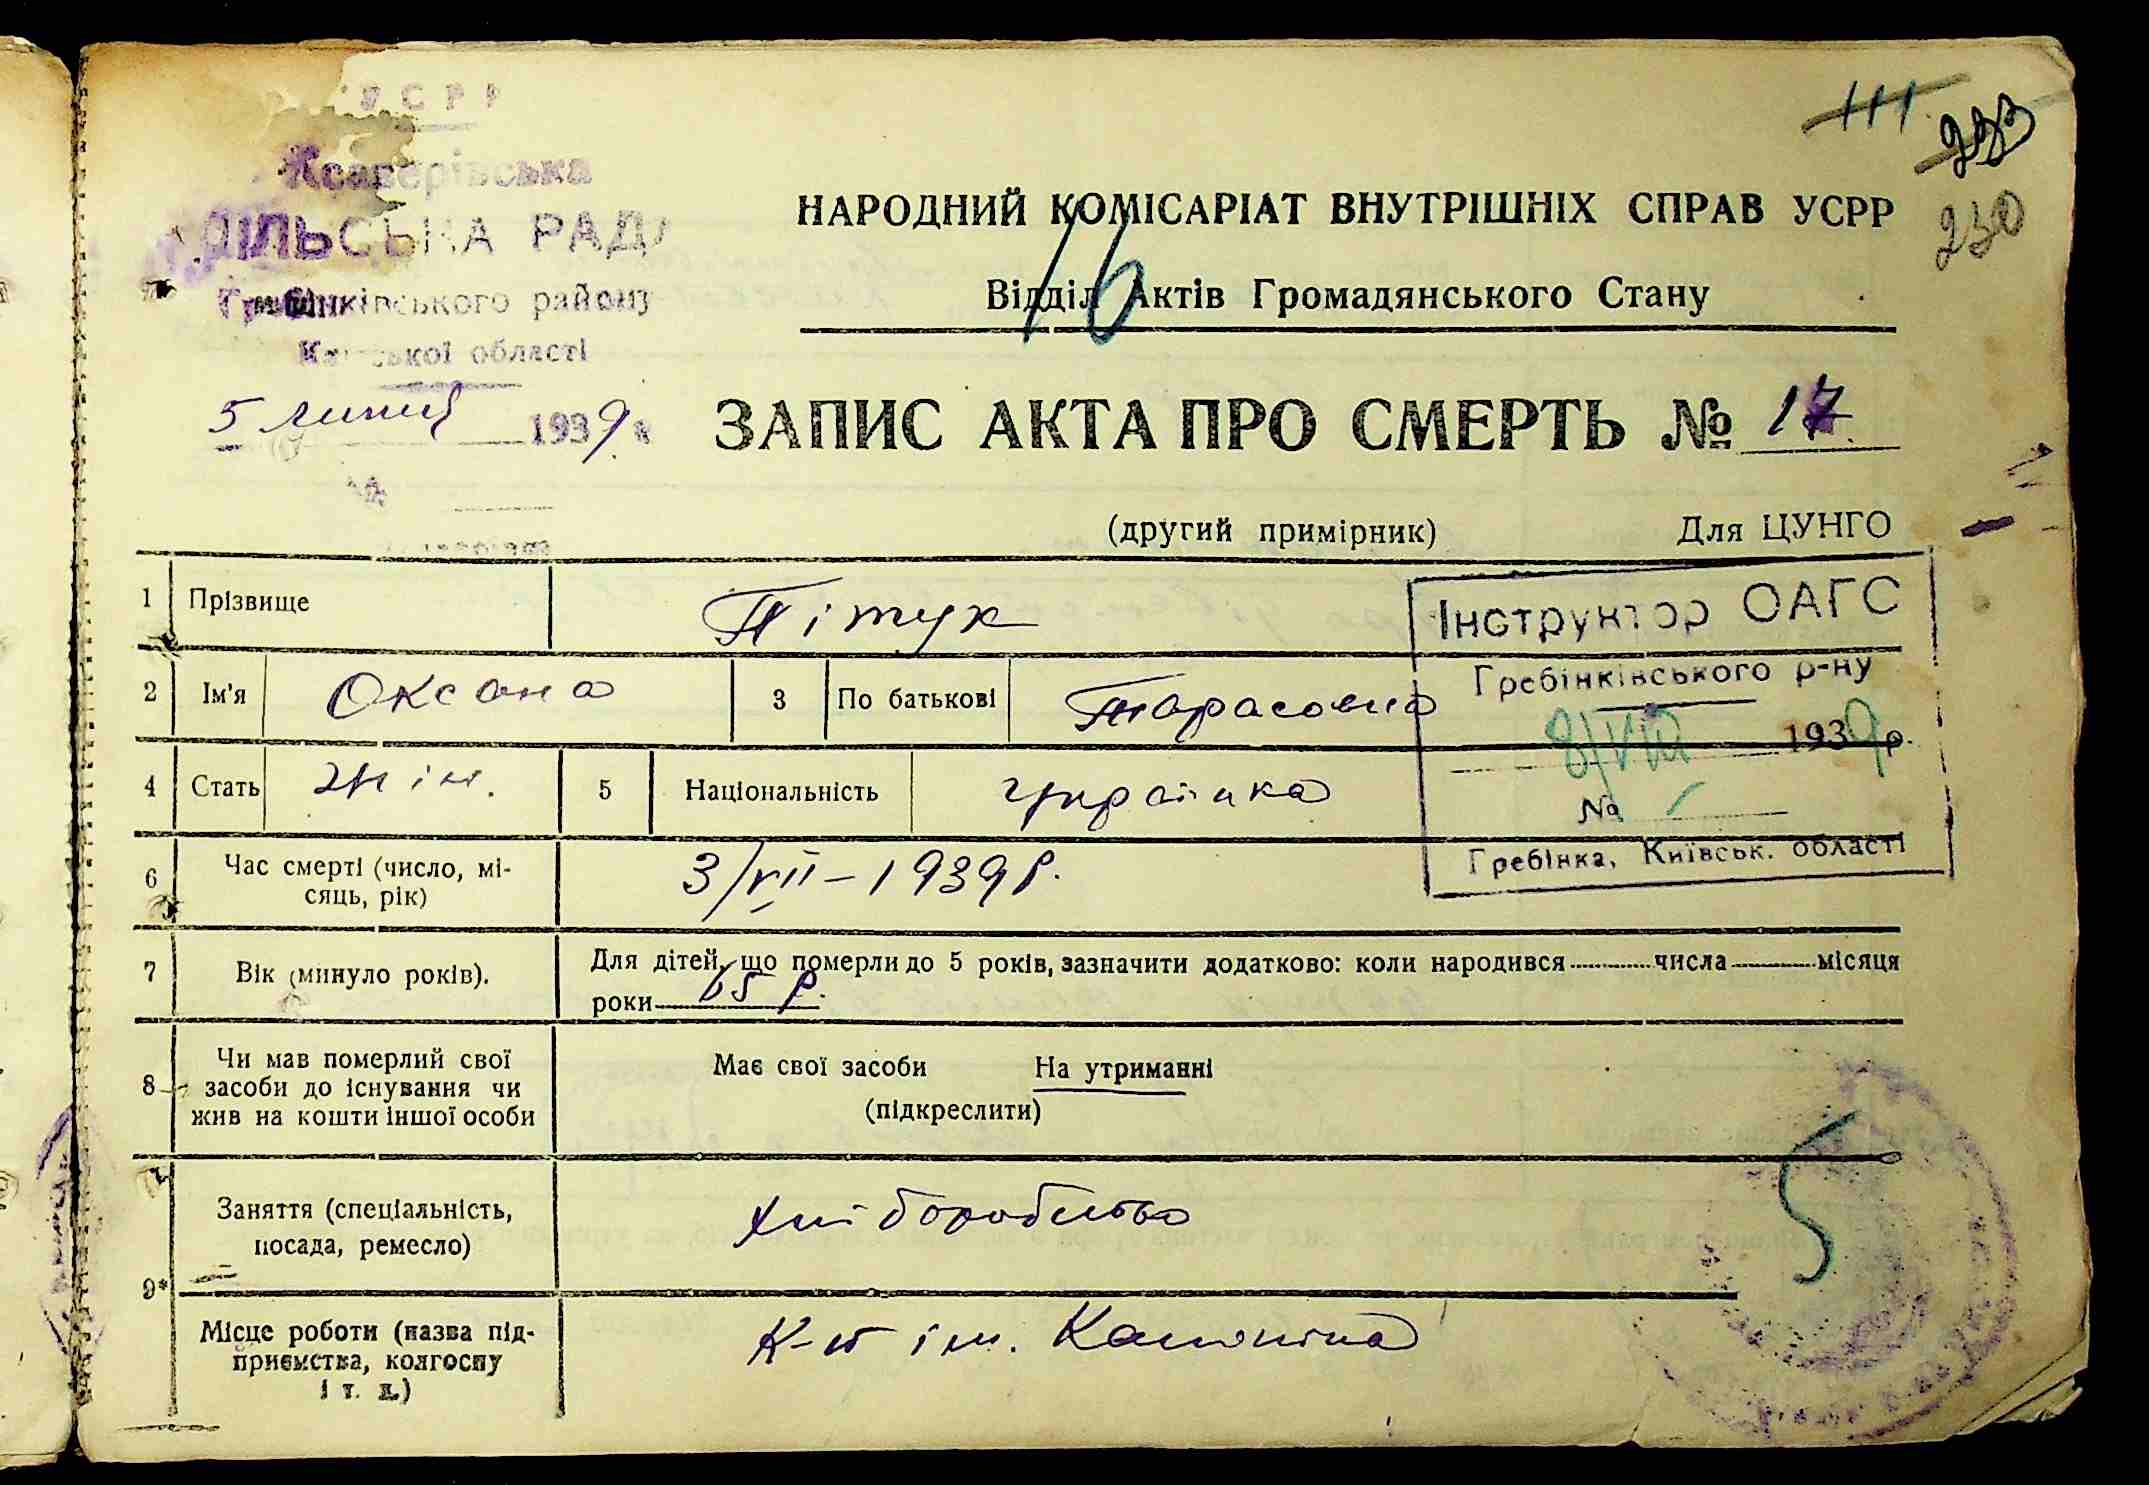 УСРР
Ксаверівська
СІЛЬСЬКА РАДА
Гребінківського району
Київської області
5 липня 1939 р.
111
233
230
НАРОДНИЙ КОМІСАРІАТ ВНУТРІШНІХ СПРАВ УСРР
16
Відділ Актів Громадянського Стану
ЗАПИС АКТА ПРО СМЕРТЬ № 17
(другий примірник) Для ЦУНГО
Інструктор ОАГС
Гребінківського р-ну
8/VIII 1939 р.
№
Гребінка, Київськ. області
1 Прізвище Пітук
2 Ім'я Оксана 3 По батькові Тарасовна
4 Стать жін. 5 Національність українка
6 Час смерті (число, мі-
сяць, рік) 3/VII – 1939 р.
7 Вік (минуло років). Для дітей, що померли до 5 років, зазначити додатково: коли народився числа місяця
роки 65 р.
8 Чи мав померлий свої
засоби до існування чи
жив на кошти іншої особи
Має свої засоби На утриманні
(підкреслити)
9* Заняття (спеціальність,
посада, ремесло) хліборобство
5
Місце роботи (назва під-
приємства, колгоспу
і т. д.) К-п ім. Калініна